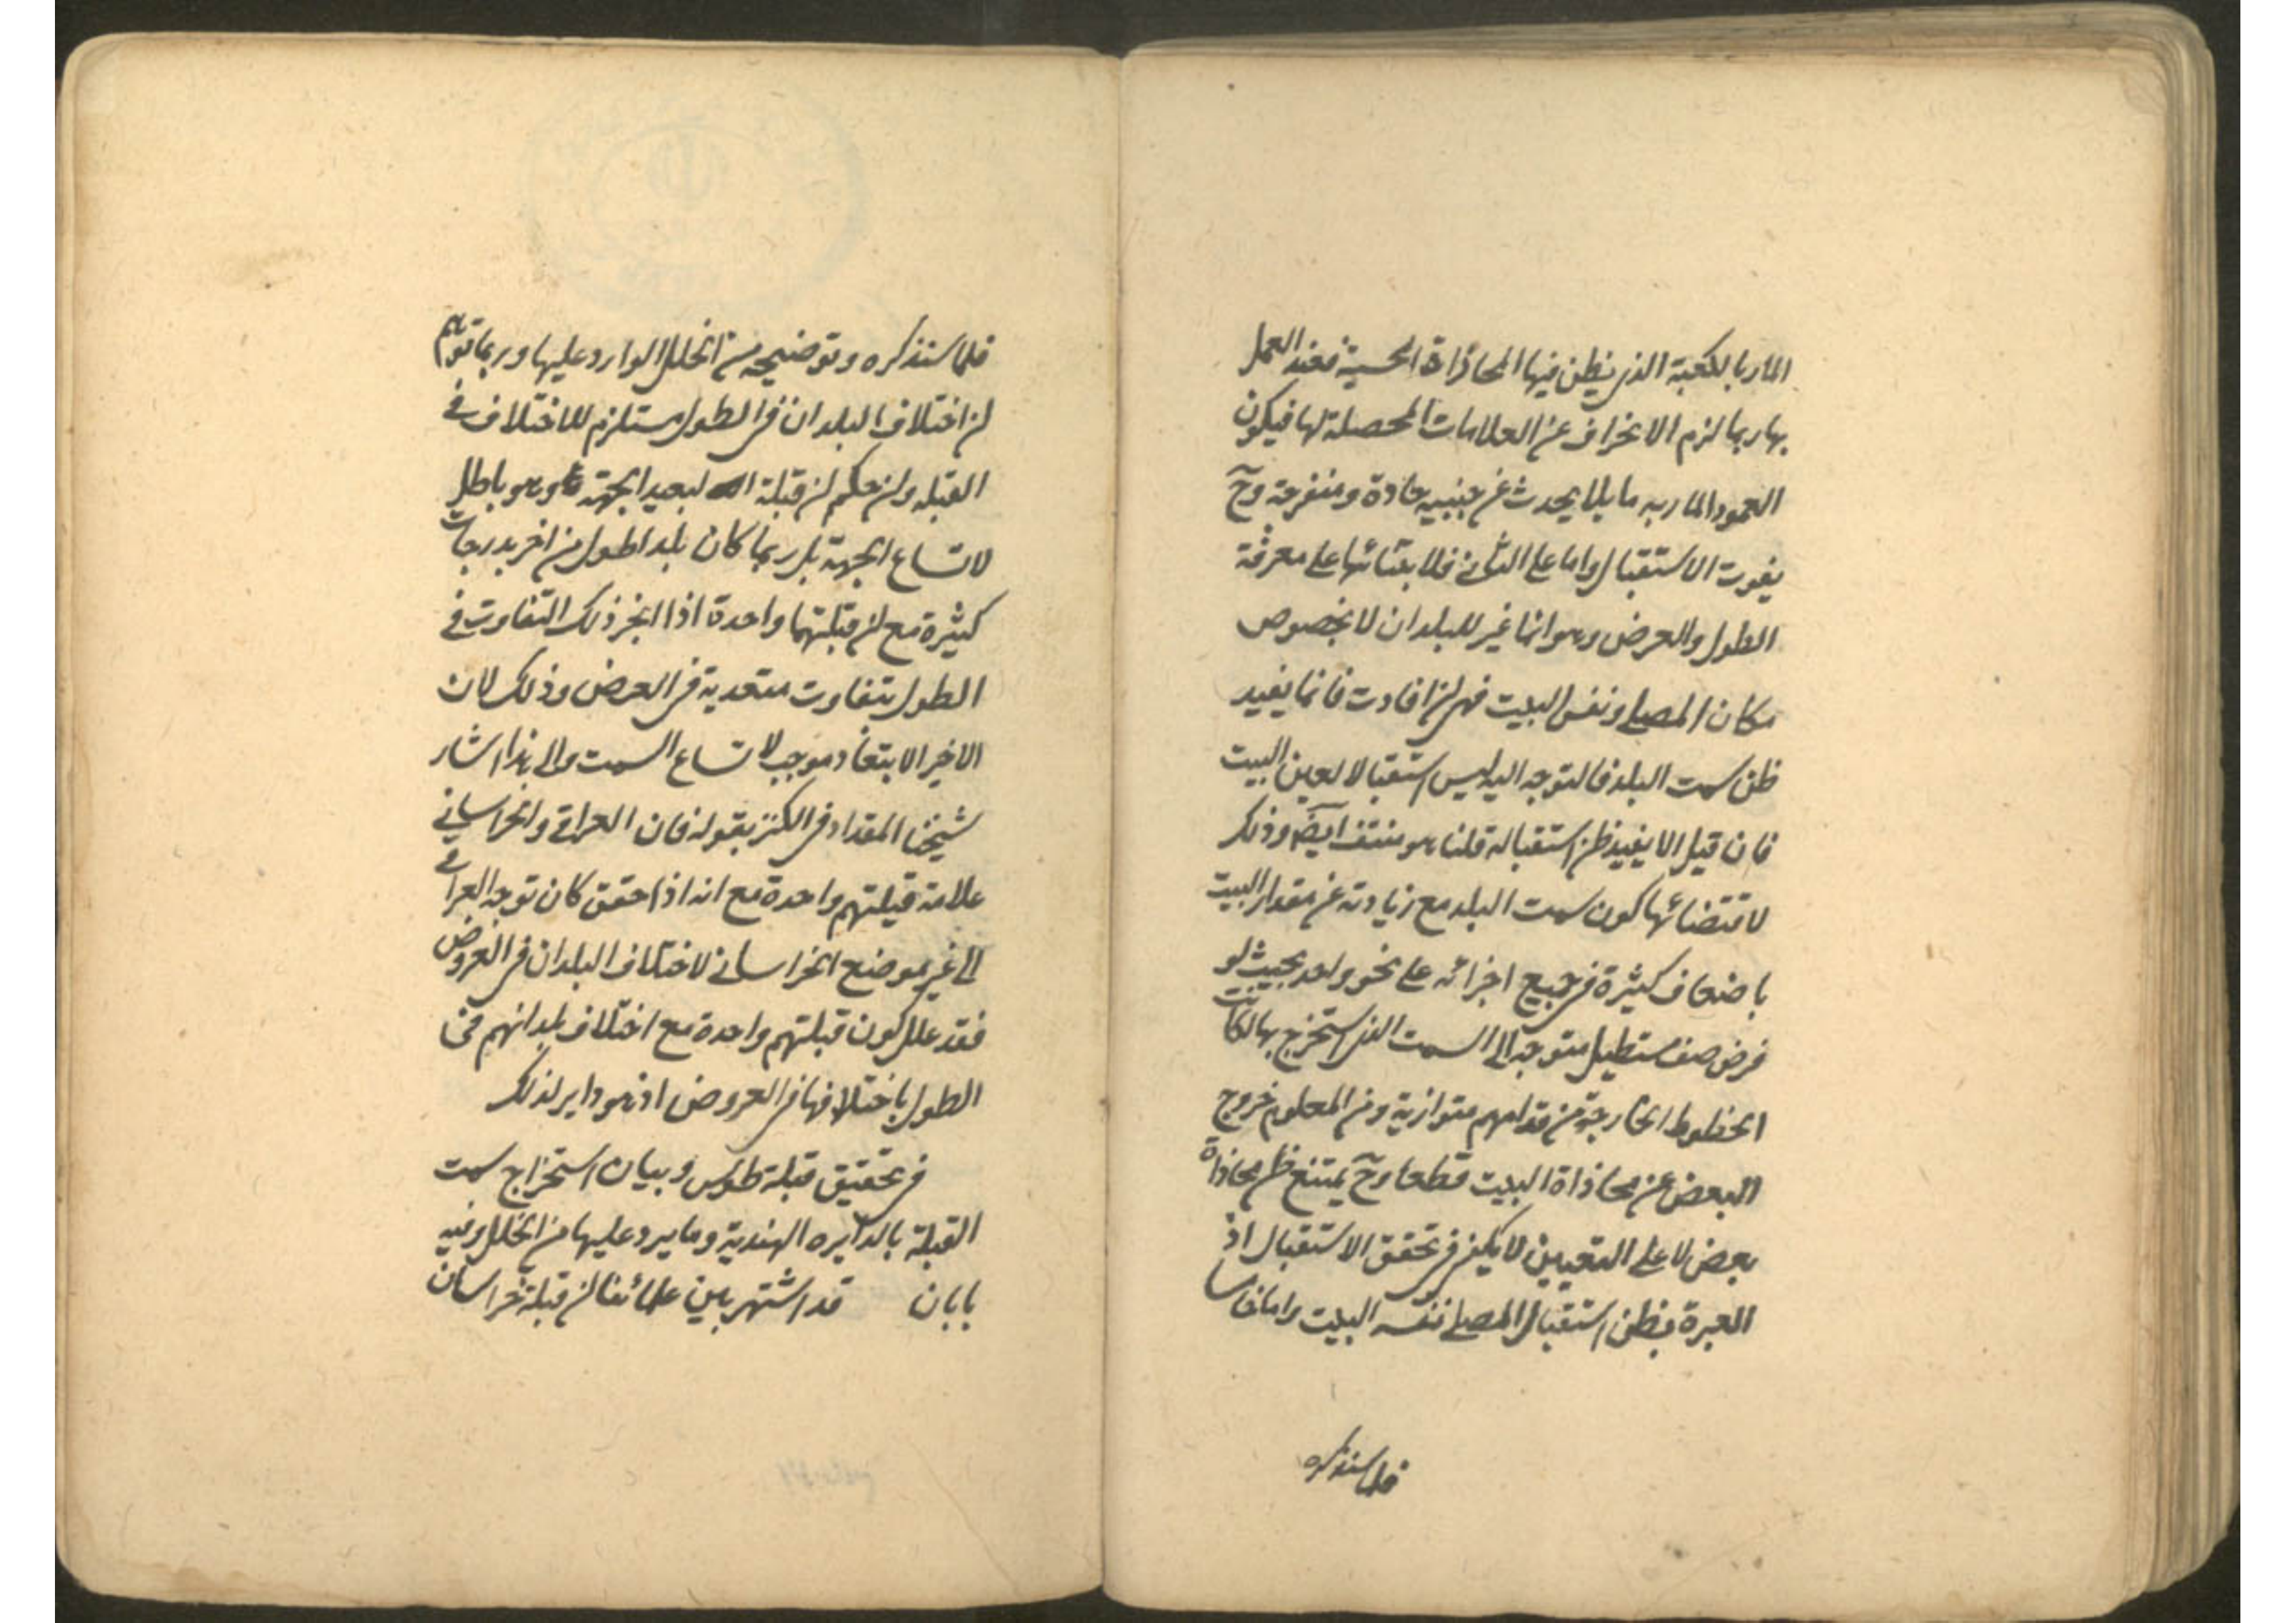 المار بالكعبة الذی يظن فيها المحاذاة الحسية فعند العمل
بها ربما لزم الانحراف عن العلامات المحصلة لها فيكون
العمود المار به مايلا يحدث عن جنبيه حادة ومنفرجة وح
يفوت الاستقبال واما علی الثانی فلابتنائها علی معرفة
الطول والعرض وهو انما غير للبلدان لا بخصوص
مكان المصلی ونفس البيت فهی ان افادت فانما يفيد
ظن سمت البلد فالتوجه اليه ليس استقبالا لعين البيت
فان قيل الا يفيد ظن استقباله قلنا هو منتف ايضا وذلك
لاقتضائها كون سمت البلد مع زيادته عن مقدار البيت
باضعاف كثيرة فی جميع اجزائه علی نحو واحد بحيث لو
فرض صف مستطيل متوجه الی السمت الذی استخرج بها لكانت
الخطوط الخارجة من قدامهم متوازية ومن المعلوم خروج
البعض عن محاذاة البيت قطعا وح يمتنع ظن محاذاة
بعض لا علی التعيين لا يكفی فی تحقق الاستقبال اذ
العبرة بظن استقبال المصلی نفسه البيت واما خامسا
فلما سنذكره
فلما سنذكره وتوضيحه من الخلل الوارد عليها وربما توهم
ان اختلاف البلدان فی الطول مستلزم للاختلاف فی
القبلة وان حكم ان قبلة البعيد الجهة وهو باطل
لاتساع الجهة بل ربما كان بلد اطول من اخر بدرجات
كثيرة مع ان قبلتهما واحدة اذا انجبر ذلك التفاوت فی
الطول بتفاوت متعدية فی العرض وذلك لان
الاخير الابتعاد موجب لاتساع السمت والی هذا اشار
شيخنا المقداد فی الكنز بقوله فان العراقی والخراسانی
علامة قبلتهم واحدة مع انه اذا حقق كان توجه العراقی
الی غير موضع الخراسانی لاختلاف البلدان فی العروض
فقد علل كون قبلتهم واحدة مع اختلاف بلدانهم فی
الطول باختلافها فی العروض اذ هو داير لذلك
فی تحقيق قبلة طوس وبيان استخراج سمت
القبلة بالدايره الهندية وما يرد عليها من الخلل وفيه
بابان قد اشتهر بين علمائنا ان قبلة خراسان